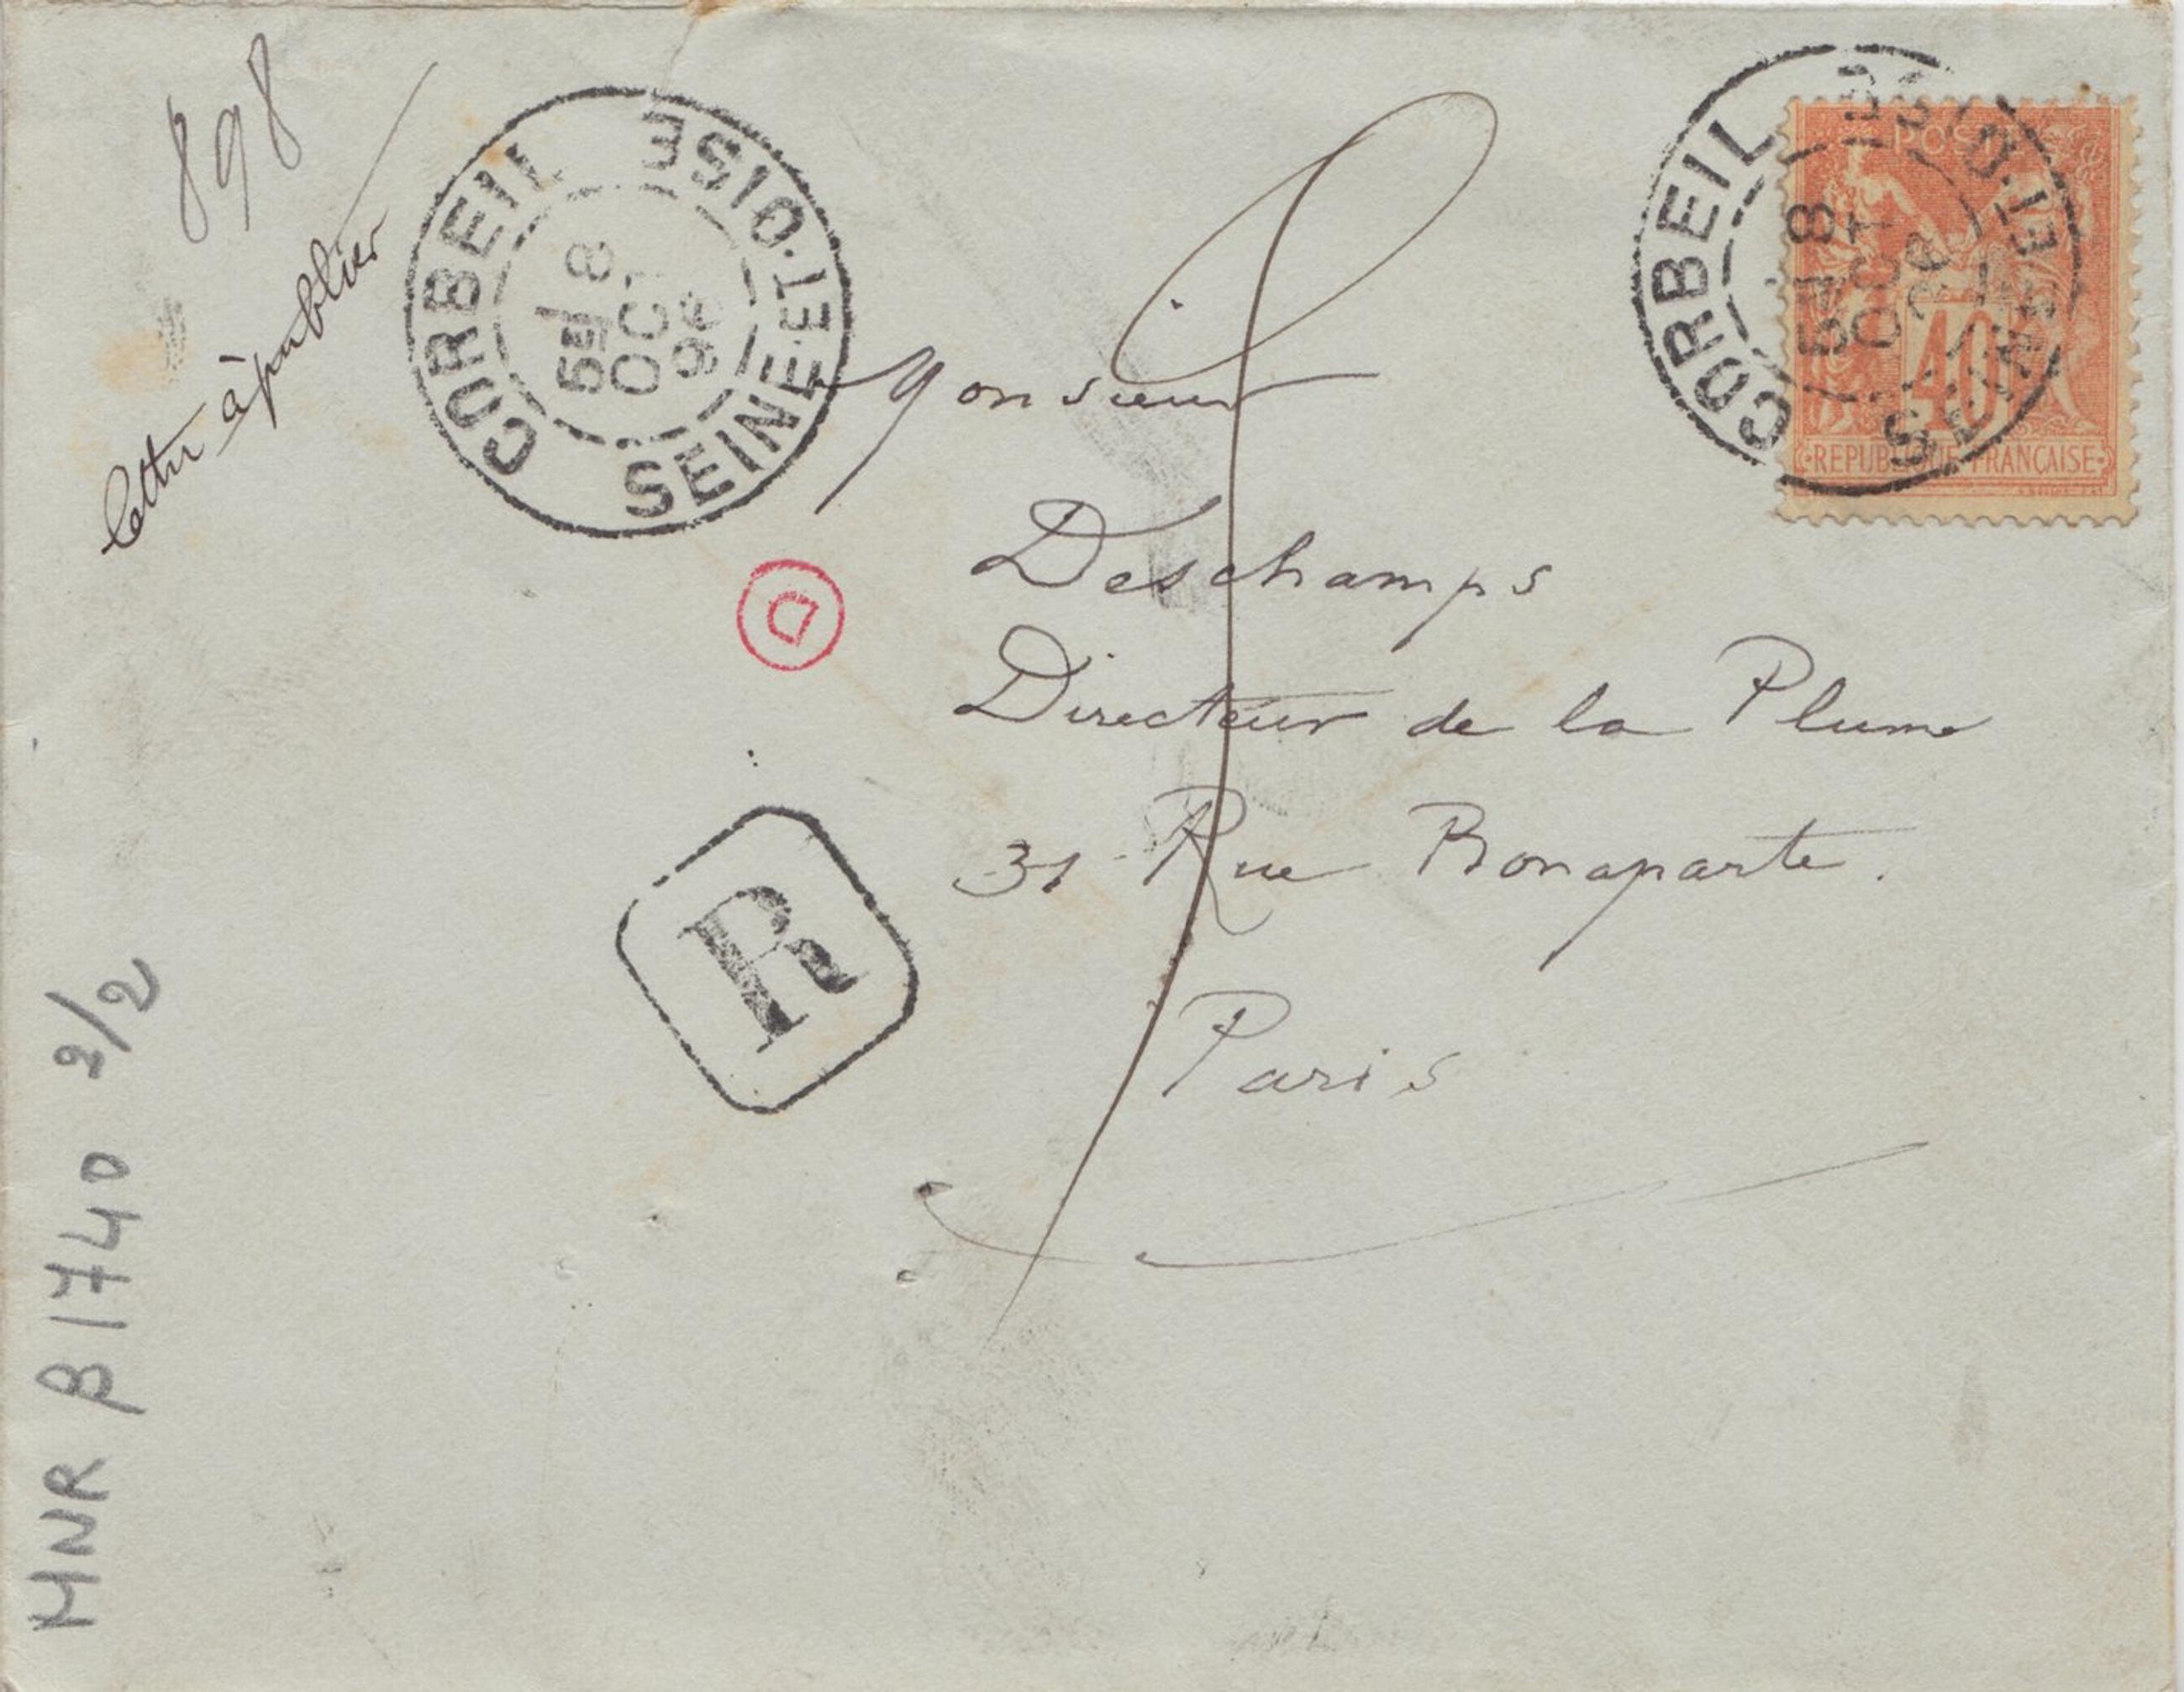 898
lettre à publier
CORBEIL
SEINE-ET-OISE
5E / 8
OCT
96
CORBEIL
SEINE-ET-OISE
5E / 8
OCT
96
POSTES
40
REPUBLIQUE FRANÇAISE
Monsieur
Deschamps
D
Directeur de la Plume
31 Rue Bonaparte.
R
Paris
MNR β 1740 2/2